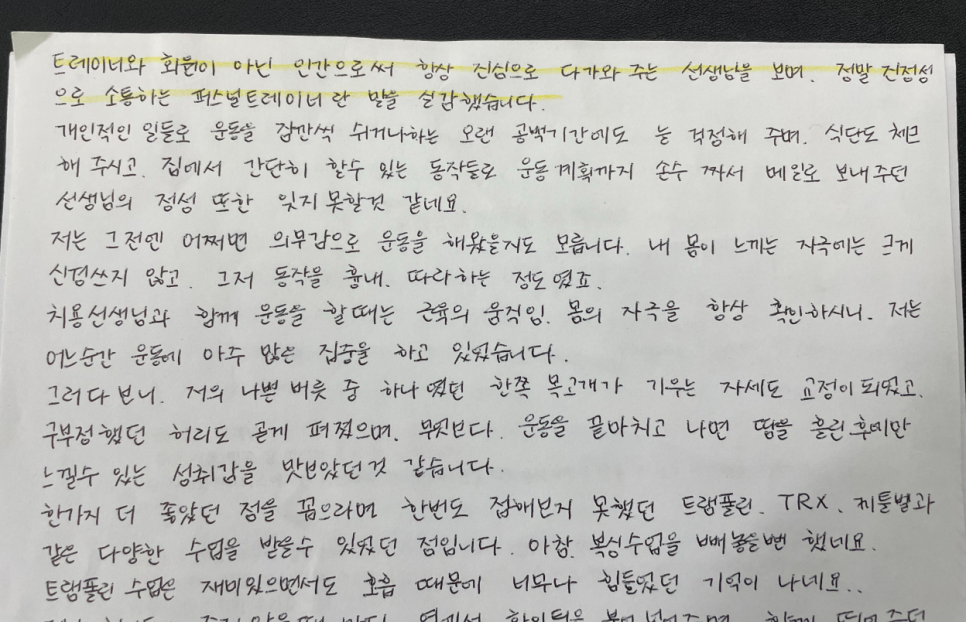 트레이너와 회원이 아닌 인간으로써 항상 진심으로 다가와 주는 선생님을 보며. 정말 진정성
으로 소통하는 퍼스널트레이너란 말을 실감했습니다.
개인적인 일들로 운동을 잠깐씩 쉬거나하는 오랜 공백기간에도 늘 걱정해 주며. 식단도 체크
해 주시고. 집에서 간단히 할수 있는 동작들로 운동계획까지 손수 짜서 메일로 보내주던
선생님의 정성 또한 잊지 못할것 같네요.
저는 그전엔 어쩌면 의무감으로 운동을 해왔을지도 모릅니다. 내 몸이 느끼는 자극에는 크게
신경쓰지 않고. 그저 동작을 흉내. 따라하는 정도였죠.
치용선생님과 함께 운동을 할때는 근육의 움직임. 몸의 자극을 항상 확인하시니. 저는
어느순간 운동에 아주 많은 집중을 하고 있었습니다.
그러다 보니. 저의 나쁜 버릇 중 하나 였던 한쪽 목고개가 기우는 자세도 교정이 되었고.
구부정했던 허리도 곧게 펴졌으며. 무엇보다. 운동을 끝마치고 나면 땀을 흘린후에만
느낄수 있는 성취감을 맛보았던것 같습니다.
한가지 더 좋았던 점을 꼽으라면 한번도 접해보지 못했던 트램폴린. TRX. 케틀벨과
같은 다양한 수업을 받을수 있었던 점입니다. 아참. 복싱수업을 빼놓을뻔 했네요.
트램폴린 수업은 재미있으면서도 호흡 때문에 너무나 힘들었던 기억이 나네요..